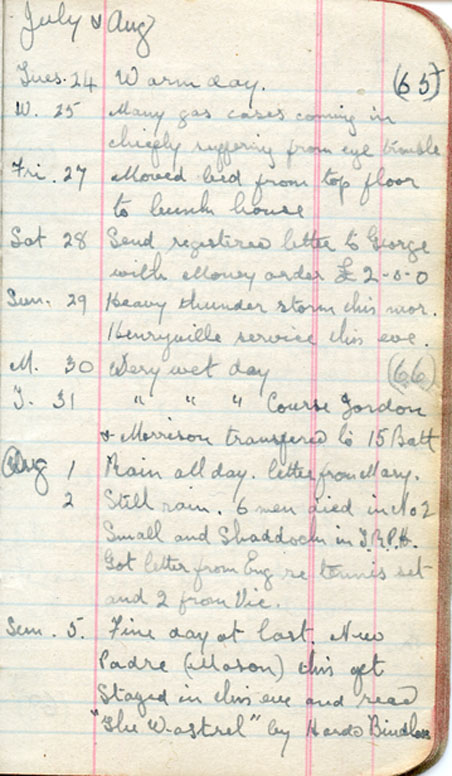 July & Aug
Tues. 24 Warm day. (65)
W. 25 Many gas cases coming in
chiefly suffering from eye trouble
Fri. 27 Moved bed from top floor
to bunk house
Sat 28 Send registered letter to George
with Money order £2-0-0
Sun. 29 Heavy thunder storm this mor.
Henryville service this eve.
M. 30 Very wet day (66)
T. 31 " " " Course Gordon
& Morrison transfered to 15 Batt
Aug 1 Rain all day. letter from Mary.
2 Still rain. 6 men died in No 2
Small and Shaddock in
Got letter from Eng re tennis set
and 2 from Vic.
Sun. 5. Fine day at last. New
Padre (Mason) this
Stayed in this eve and read
"The Wastrel" by Bindloss